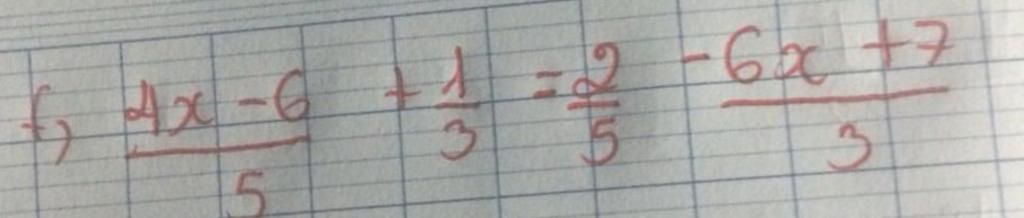 f, \frac{4x - 6}{5} + \frac{1}{3} = \frac{2}{5} \frac{-6x + 7}{3}